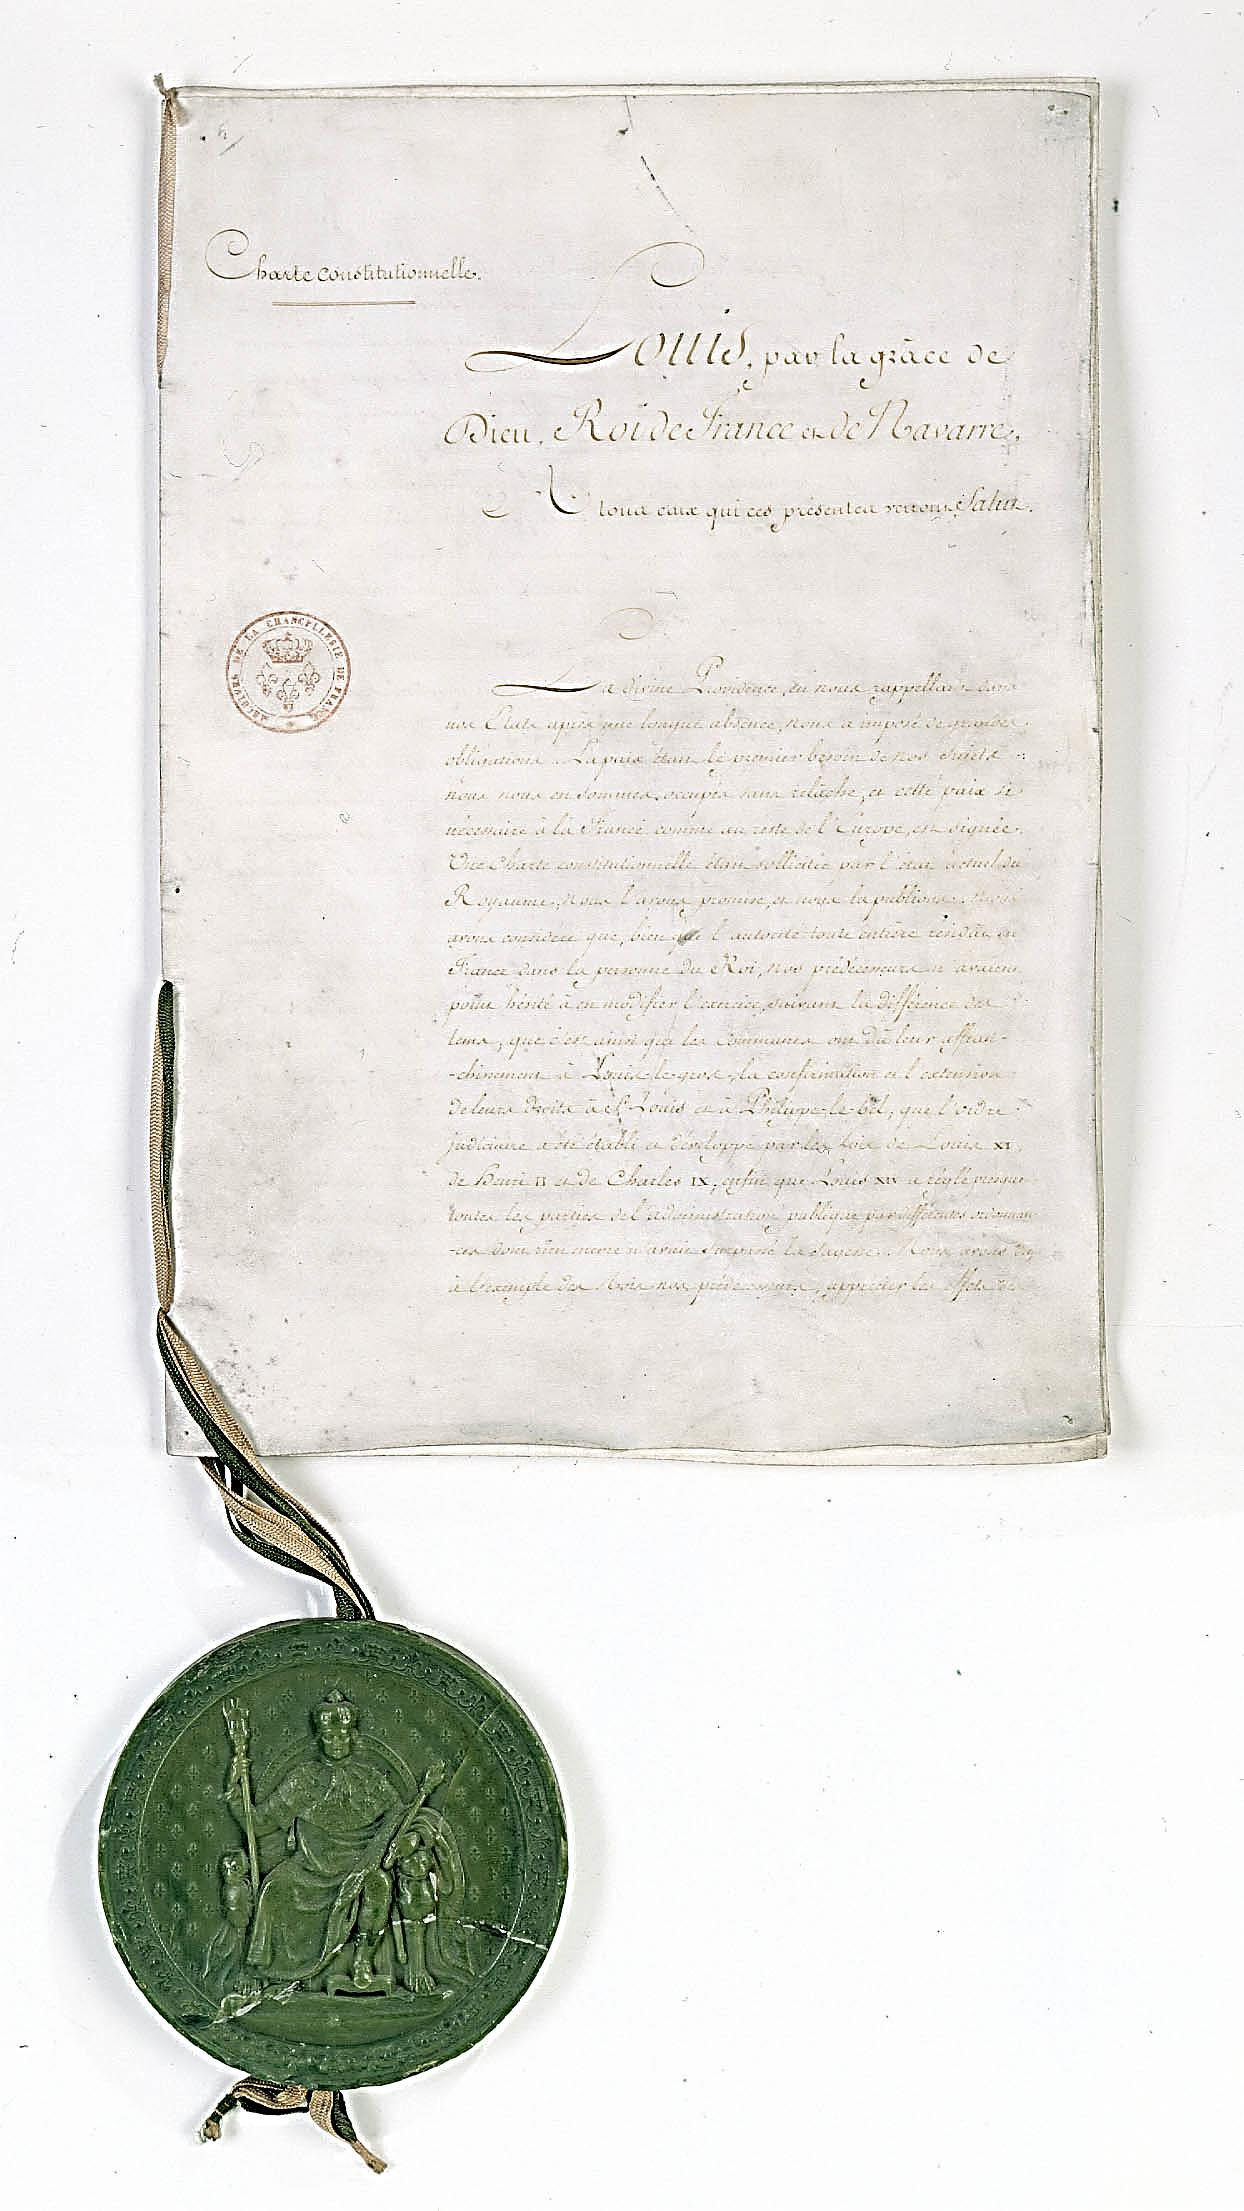 Charte constitutionnelle.
Louis, par la grâce de
Dieu, Roi de France et de Navarre,
A tous ceux qui ces présentes verront, Salut.
ARCHIVES DE LA CHANCELLERIE DE FRANCE
La divine Providence, en nous rappellant dans
nos Etats après une longue absence, nous a imposé de grandes
obligations. La paix était le premier besoin de nos sujets
nous nous en sommes occupés sans relâche, et cette paix si
nécessaire à la France comme au reste de l'Europe, est signée.
Une Charte constitutionnelle était sollicitée par l'état actuel du
Royaume, nous l'avons promise, et nous la publions. Nous
avons considéré que, bien que l'autorité toute entière résidât en
France dans la personne du Roi, nos prédécesseurs n'avaient
point hésité à en modifier l'exercice, suivant la différence des
tems, que c'est ainsi que les Communes ont dû leur affran-
-chissement à Louis-le-gros, la confirmation et l'extension
de leurs droits à St. Louis et à Philippe-le-bel, que l'ordre
judiciaire a été établi et développé par les loix de Louis XI,
de Henri II et de Charles IX, enfin que Louis XIV a réglé presque
toutes les parties de l'administration publique par différentes ordonnan-
-ces dont rien encore n'avait surpassé la sagesse. Nous avons dû
à l'exemple des Rois nos prédécesseurs, apprécier les effets des